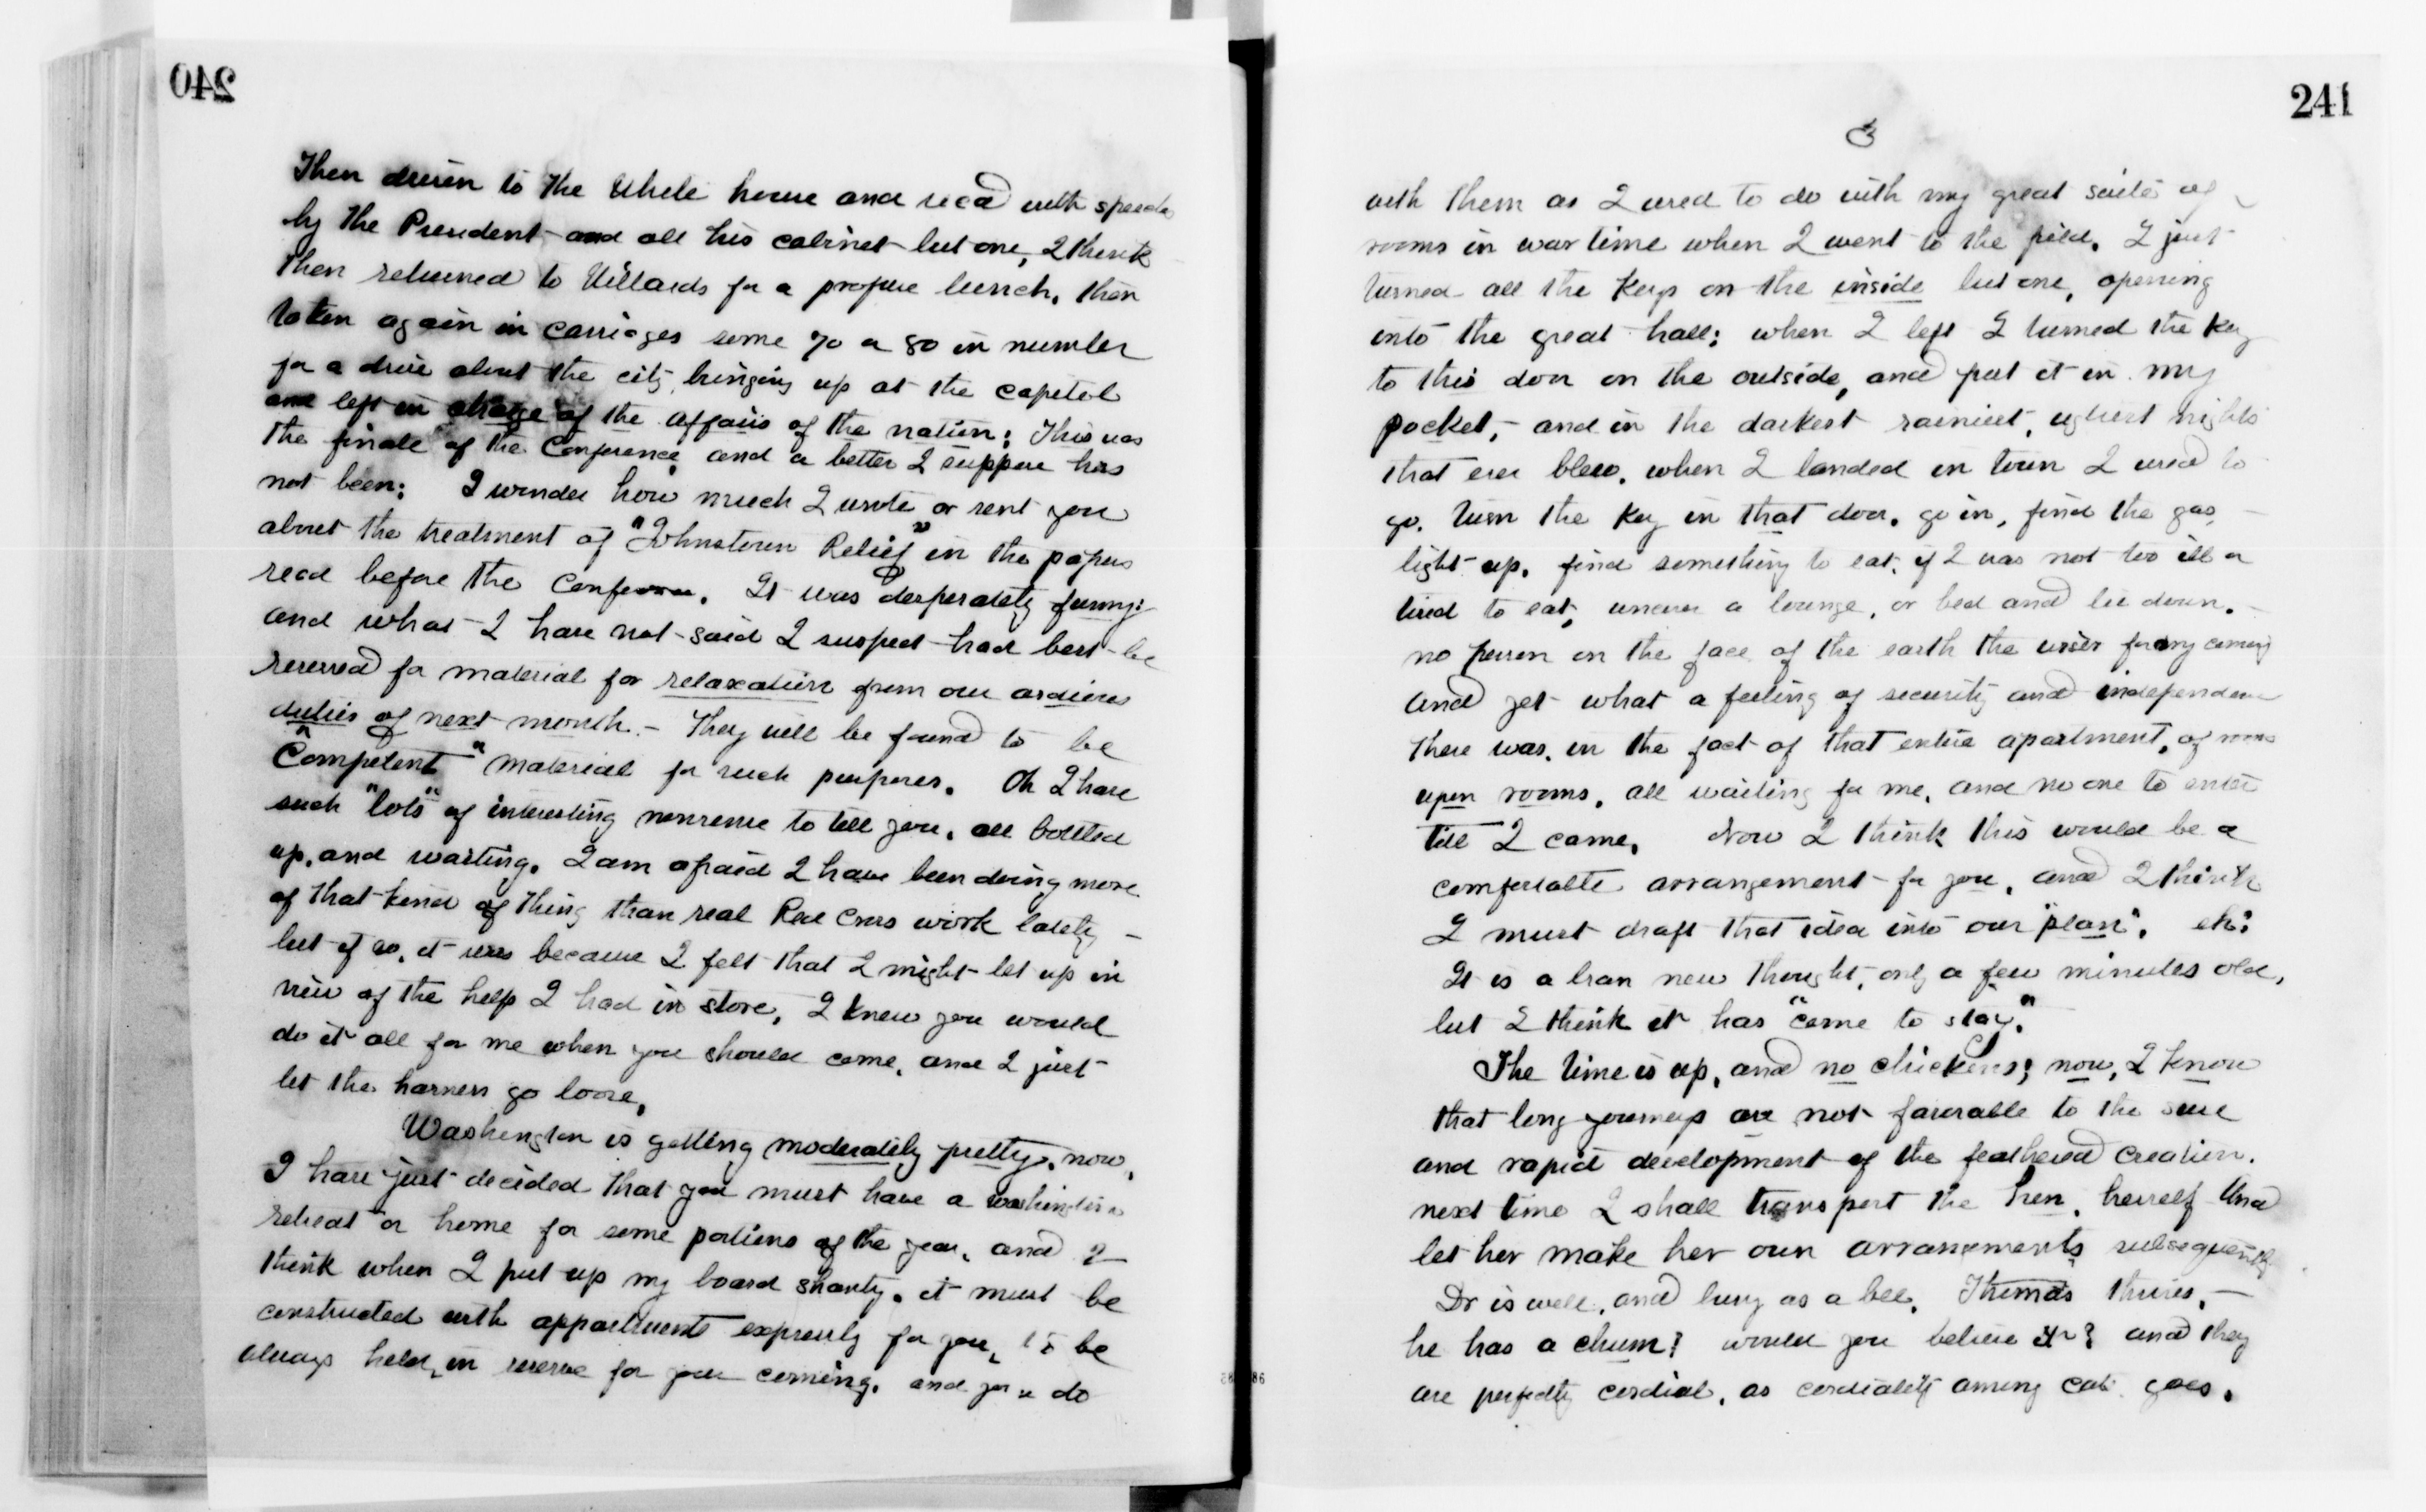 240
Then driven to the White house and recd with speech
by the President and all his cabinet but one, I think
then returned to Willards for a profuse lunch. then
taken again in carriages some 70 or 80 in number
for a drive about the city bringing up at the capitol
and left in charge of the affairs of the nation; This was
the finale of the Conference, and a better I suppose has
not been; I wonder how much I wrote or sent you
about the treatment of "Johnstown Relief" in the papers
read before the Conference. It was desperately funny;
and what I have not said I suspect had best be
reserved for material for relaxation from our arduous
duties of next month. - They will be found to be
"Competent" material for such purposes. Oh I have
such "lots" of interesting nonsense to tell you. all bottled
up. and waiting. I am afraid I have been doing more
of that kind of thing than real Red Cross work lately -
but if so, it was because I felt that I might let up in
view of the help I had in store, I knew you would
do it all for me when you should come, and I just
let the harness go loose,
Washington is getting moderately pretty. now,
I have just decided that you must have a Washington
retreat or home for some portions of the year, and I
think when I put up my board shanty. it must be
constructed with appartments expressly for you, to be
always held, in reserve for your coming. and you do
241
3
with them as I used to do with my great suite of
rooms in war time when I went to the field. I just
turned all the keys on the inside but one, opening
into the great hall; when I left I turned the key
to this door on the outside, and put it in my
pocket, - and in the darkest rainiest, ugliest nights
that ever blew. when I landed in town I used to
go. turn the key in that door. go in, find the gas, -
light up. find something to eat. if I was not too ill or
tired to eat, uncover a lounge, or bed and lie down. -
no person on the face of the earth the wiser for my coming
and yet what a feeling of security and independence
there was. in the fact of that entire apartment, of rooms
upon rooms. all waiting for me, and no one to enter
till I came. Now I think this would be a
comfortable arrangement for you, and I think
I must draft that idea into our "plan". eh?
It is a bran new thought, only a few minutes old,
but I think it has "come to stay."
The time is up, and no chickens; now, I know
that long journeys are not favorable to the sure
and rapid development of the feathered creation.
next time I shall transport the hen, herself and
let her make her own arrangements subsequently
Dr is well, and busy as a bee. Thomas thrives, -
he has a chum! would you believe it? and they
are perfectly cordial, as cordiality among cats goes.